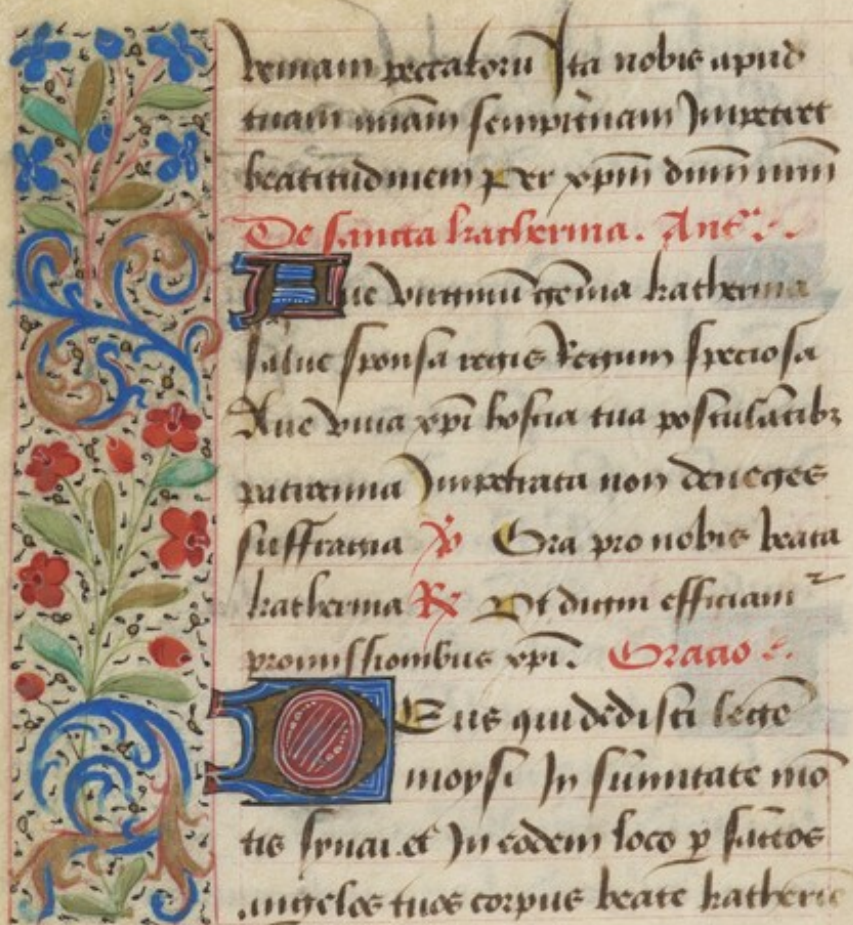 veniam peccatorũ Ita nobis apud
tuam mĩam sempit̃nam Impetret
beatitudinem Per xp̃m dñm nr̃m
De sancta katherina. Anẽ.
Aue virginũ gẽma katherina
Salue sponsa regis Regum speciosa
Aue viua xp̃i hostia tua postulãtibꝫ
patrocinia Impetrata non deneges
suffragia ℣ Ora pro nobis beata
katherina ℞ Vt digni efficiam²
promissionibus xp̃i. Oracio
DEus qui dedisti legẽ
moysi In sũmitate mõ
tis synai. et In eodem loco ꝑ sãctos
angelos tuos corpus beate katherĩe